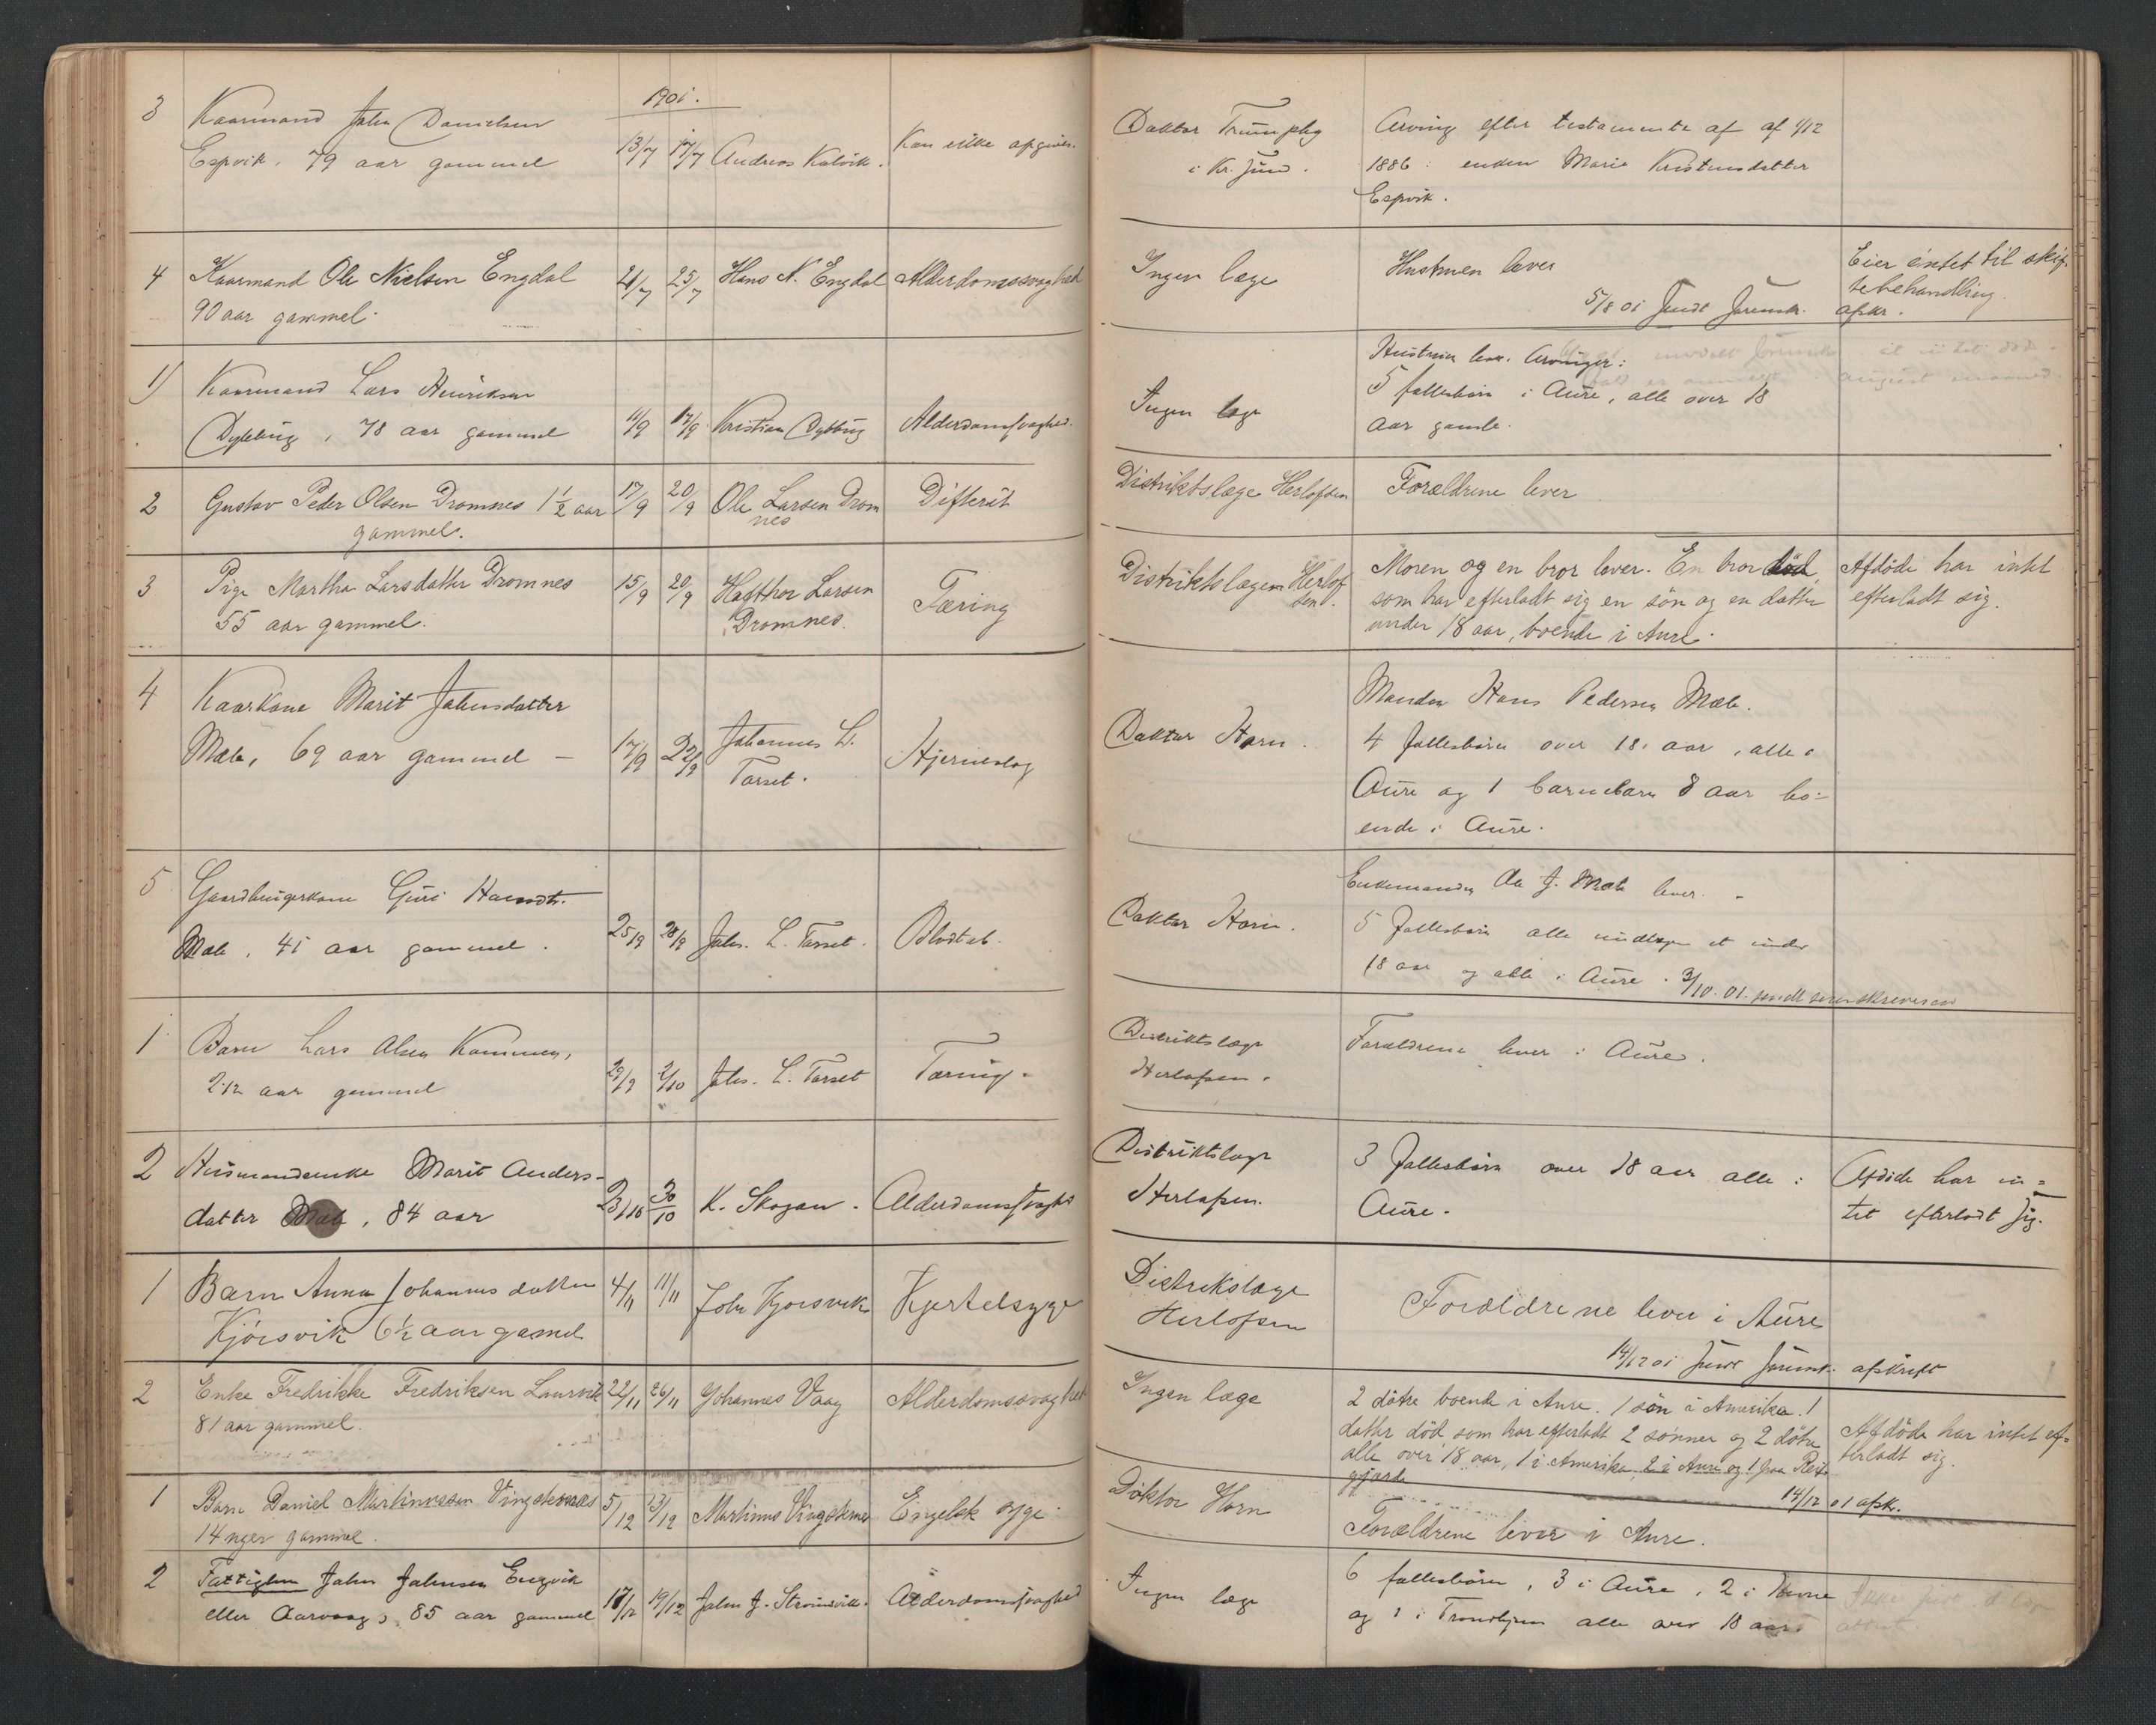 1901.
3 Kaarmand John Danielsen
Espvik, 79 aar gammel 13/7 17/7 Andreas Kalvik. Kan ikke opgives.
Doktor
i Kr.sund.
Arving efter testamente af af 1/12
1886: enken Marie Kristensdatter
Espvik.
4 Kaarmand Ole Nielsen Engdal 21/7 25/7 Hans N. Engdal Alderdomssvaghed
90 aar gammel.
Ingen læge
Hustruen lever
5/8 01 sendt sorensk. afskr.
Eier intet til skif-
tebehandling.
1) Kaarmand Lars Henriksen
Dybbug, 78 aar gammel 11/9 17/9 Kristian Dybbug Alderdomssvaghed.
Ingen læge
Hustruen lever. Arvinger:
5 fællesbörn i Aure, alle over 18
aar gamle.
2 Gustav Peder Olsen Dromnes 1 1/2 aar 17/9 20/9 Ole Larsen Drom
gammel. nes Difterit
Distriktslæge Herlofsen Forældrene lever
3 Pige Martha Larsdatter Dromnes 15/9 20/9 Hafthor Larsen
55 aar gammel. Dromnes. Tæring
Distriktslægen Herlof
sen.
Moren og en bror lever. En bror död,
som har efterladt sig en sön og en datter
under 18 aar, boende i Aure.
Afdöde har intet
efterladt sig.
4 Kaarkone Marit Johnsdatter
Mæle, 69 aar gammel – 17/9 22/9 Johannes L.
Torset. Hjerneslag
Doktor Horn.
Manden Hans Pedersen Mæle.
4 fællesbörn over 18 aar, alle i
Aure og 1 barnebarn 8 aar bo-
ende i Aure.
5 Gaardbrugerkone Guri Hansdtr.
Mæle, 41 aar gammel. 25/9 28/9 Johs. L. Torset. Blodtab.
Doktor Horn.
Enkemanden Ole J. Mæle lever.
5 fællesbörn alle undtagen et under
18 aar og alle i Aure. 3/10. 01. sendt sorenskriveren
1 Barn Lars Olsen Kammen,
2 1/2 aar gammel 29/9 2/10 Johs. L. Torset Tæring.
Distriktslæge
Herlofsen.
Forældrene lever i Aure.
2 Husmandsenke Marit Anders-
datter Mæle, 84 aar 23/10 30/10 K. Skogan. Alderdomssvaghed
Distriktslæge
Herlofsen.
3 fællesbörn over 18 aar alle i
Aure.
Afdöde har in-
tet efterladt sig.
1 Barn Anna Johannesdatter 4/11 11/11 John Kjorsvik Kjertelsyge
Kjörsvik 6 1/2 aar gamel
Distrikslæge
Herlofsen
Forældrene lever i Aure
14/12 01 sendt sorensk. afskrift
2 Enke Fredrikke Fredriksen Laurvik 22/11 26/11 Johannes Vaag Alderdomssvaghet
81 aar gammel.
Ingen læge
2 dötre boende i Aure. 1 sön i Amerika. 1
datter död som har efterladt 2 sönner og 2 dötre
alle over 18 aar, 1 i Amerika, 2 i Aure og 1 paa Reks
gjorde
Afdöde har intet ef-
terladt sig.
14/12 01 afskr.
1 Barn Daniel Martinussen Vingsternes 5/12 13/12 Martinus Vingsternes Engelsk syge
14 uger gammel.
Doktor Horn
Forældrene lever i Aure.
2 Fattiglem John Johnsen Engvik
eller Aarvaag, 85 aar gammel 17/12 19/12 John J. Strömsvik. Alderdomssvaghed
Ingen læge
6 fællesbörn, 3 i Aure, 2 i Hevne
og 1 i Trondhjem alle over 18 aar.